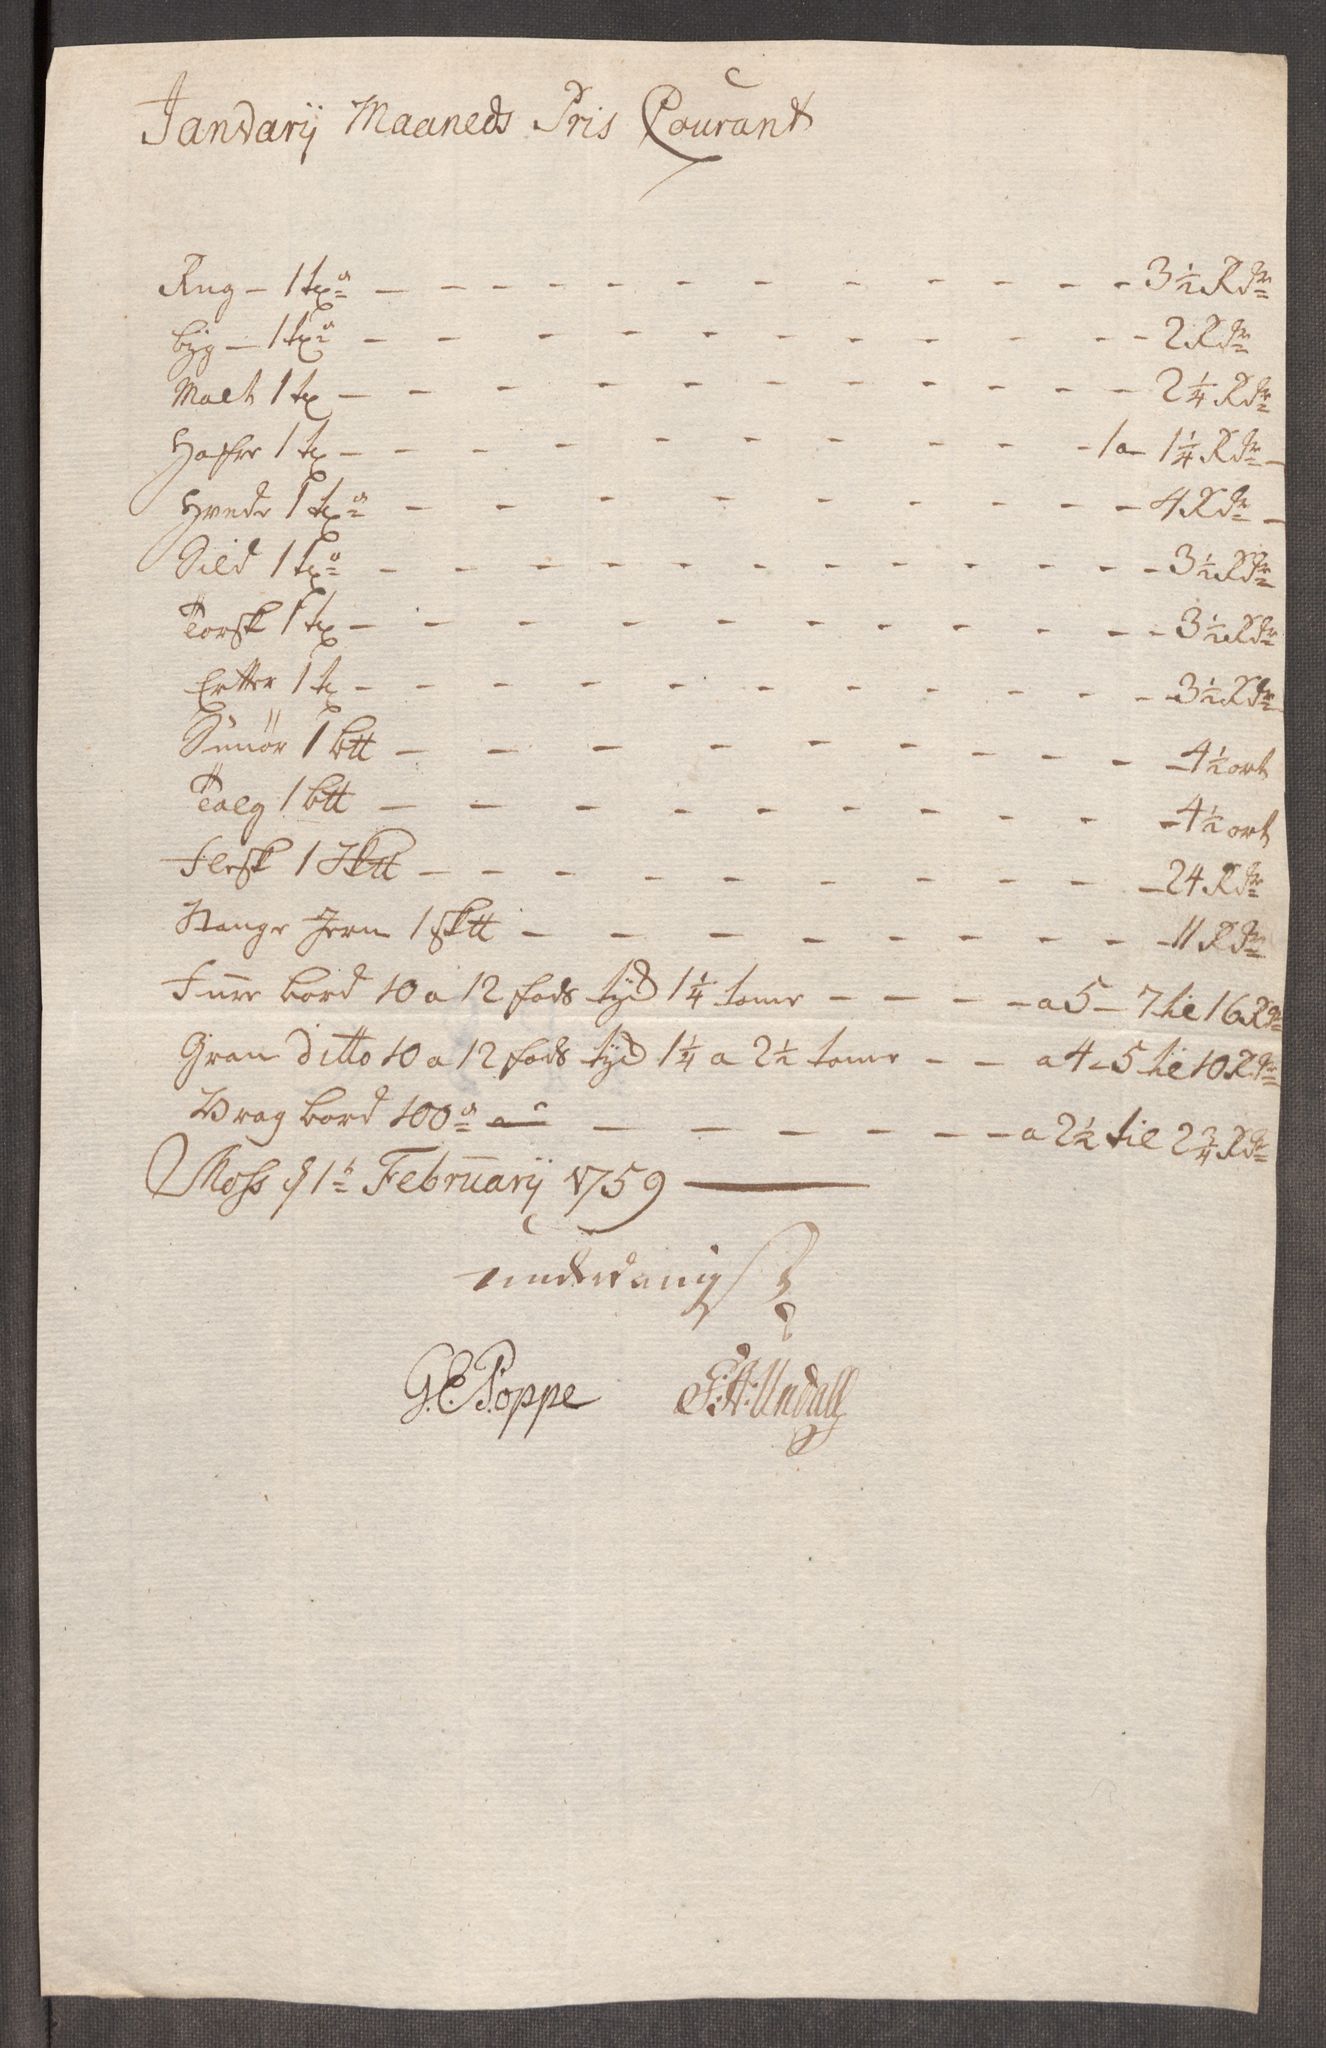 Januarij Maaneds Pris Courant
Rug - 1 tr a - - - - - - - - - - - 3½ Rdr
byg - 1 tr a - - - - - - - - - - - 2 Rdr
Malt 1 tr - - - - - - - - - - - 2¼ Rdr
Hafre 1 tr - - - - - - - - - 1 a 1¼ Rdr
Hvede 1 tr a - - - - - - - - - 4 Rdr
Sild 1 tr a - - - - - - - - - - - 3½ Rdr
Torsk 1 tr - - - - - - - - - - - 3½ Rdr
Ertter 1 tr - - - - - - - - - - - 3½ Rdr
Smör 1 btt - - - - - - - - - 4½ ort
Talg 1 btt - - - - - - - - - 4½ ort
Flesk 1 Sktt - - - - - - - - - 24 Rdr
Stange Jern 1 sktt - - - - - - - - 11 Rdr
Furre bord 10 a 12 fods tyk 1¼ tome - - - - a 5 - 7 til 16 Rdr
Gran ditto 10 a 12 fods tyk 1¼ a 2½ tome - - a 4 - 5 til 10 Rdr
Vrag bord 100 a - - - - - - - a 2½ til 2¾ Rdr
Moss d 1te Februarij 1759
underdanigst
G. C. Poppe F: H: Undall